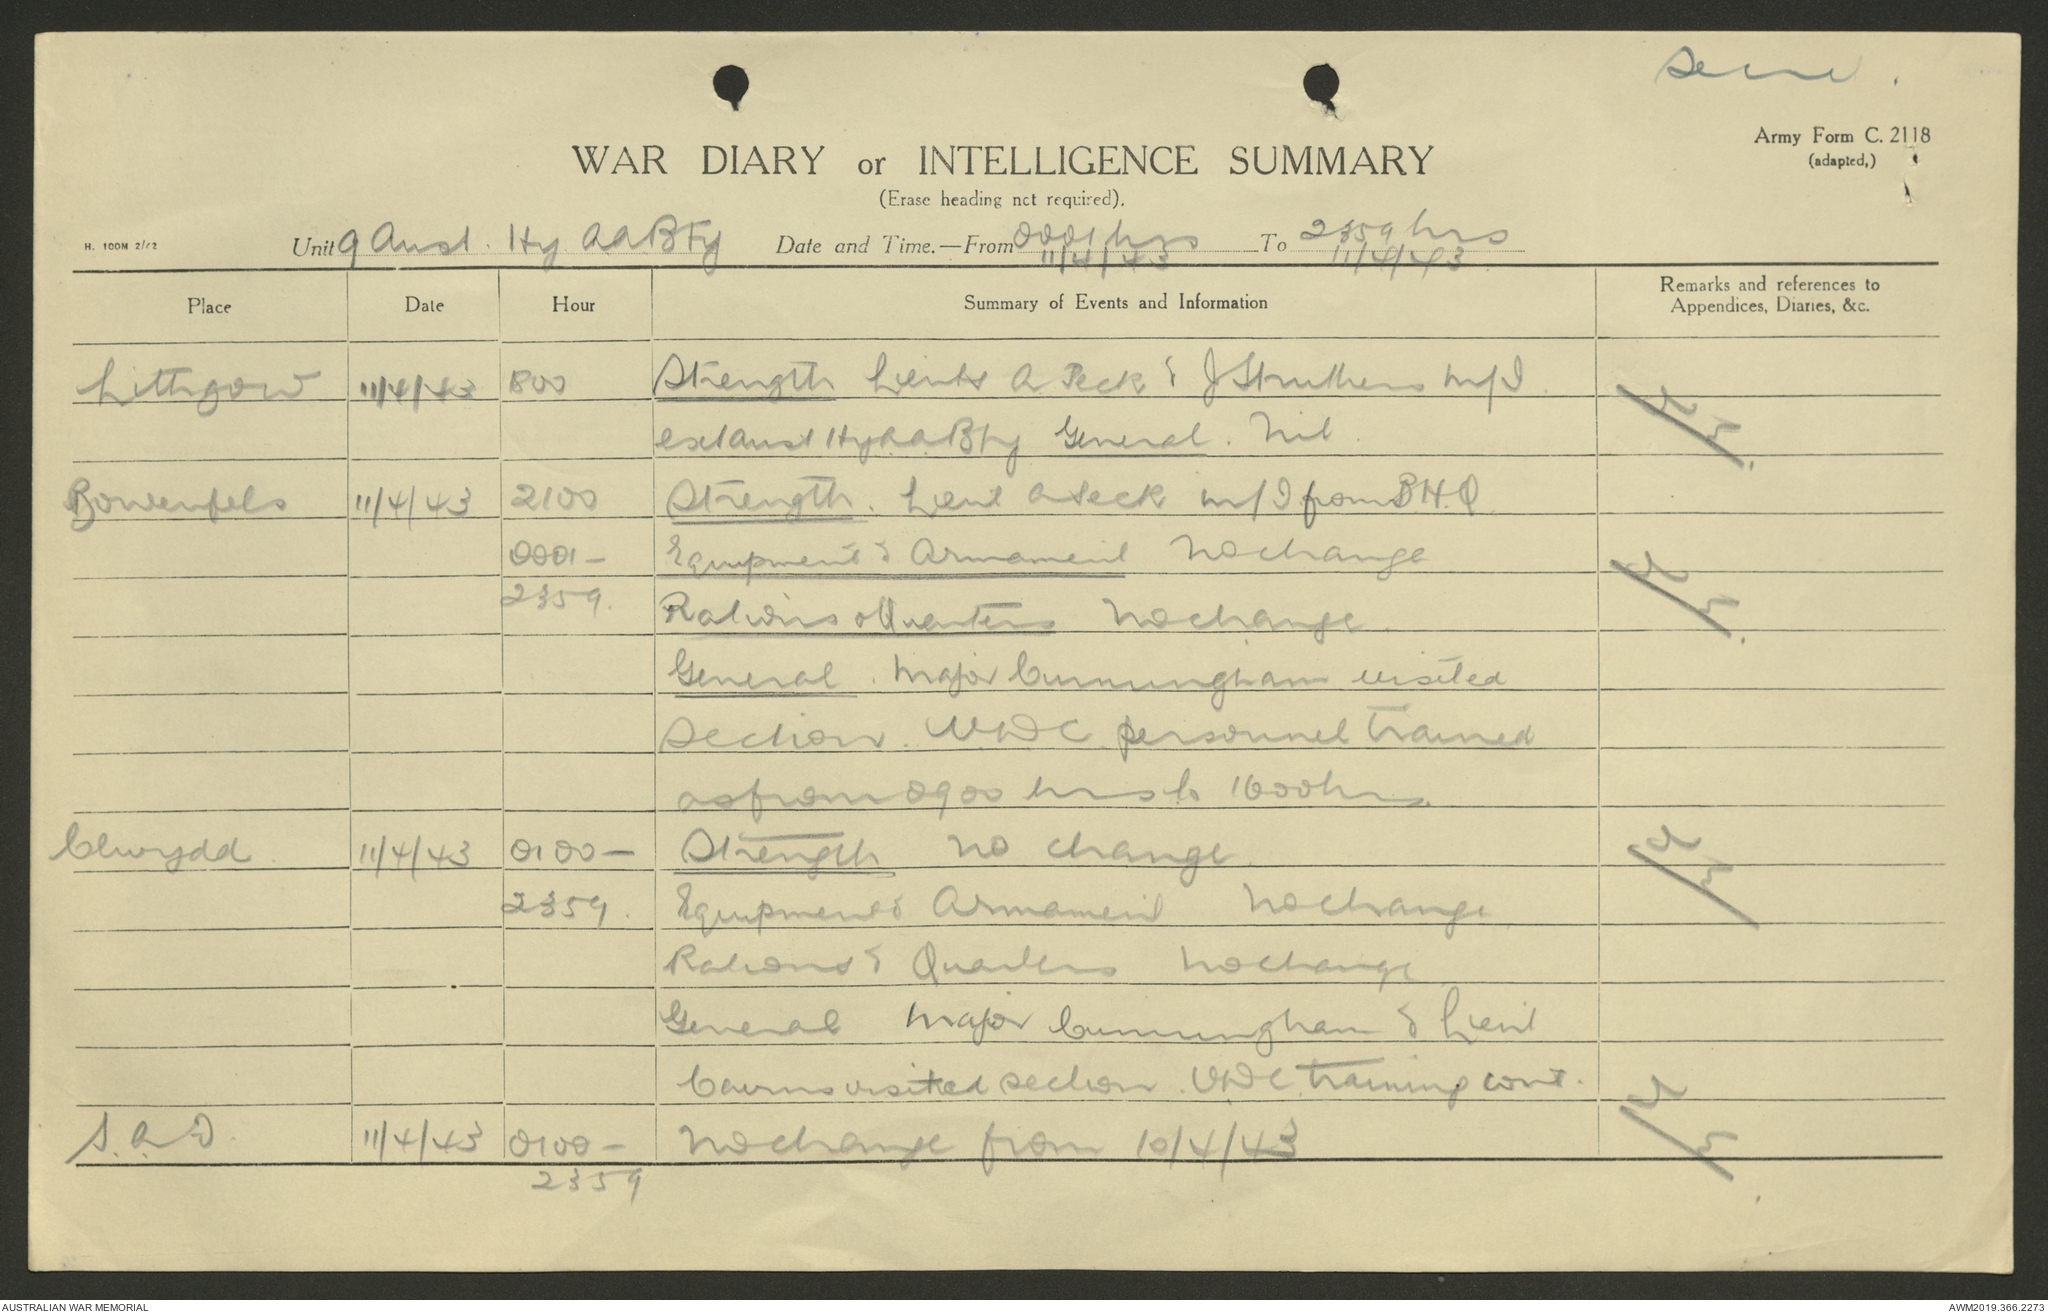 WAR DIARY or INTELLIGENCE SUMMARY
Army Form C. 2118
(adapted,)
(Erase heading not required).
H. 100M 2/42
Unit 9 Aust. Hy AA Bty Date and Time.—From 0001 hrs 11/4/43 To 2359 hrs 11/4/43
Place Date Hour Summary of Events and Information Remarks and references to Appendices, Diaries, &c.
Lithgow 11/4/43 800 Strength Lieuts A Peck & J Struthers m/I
Aust Hy AA Bty General. Nil.
Bowenfels 11/4/43 2100 Strength. Lieut A Peck m/I from BHQ
0001- Equipment & Armament No change
2359. Rations & Quarters No change.
General. Major Cunningham visited
Section. VDC personnel trained
as from 0900 hrs to 1600 hrs.
Clwydd 11/4/43 0100- Strength no change.
2359. Equipment & Armament No change
Rations & Quarters No change
General Major Cunningham & Lieut
Cairns visited section. VDC training cont.
S.A.D 11/4/43 0100- No change from 10/4/43
2359
AUSTRALIAN WAR MEMORIAL
AWM2019.366.2273